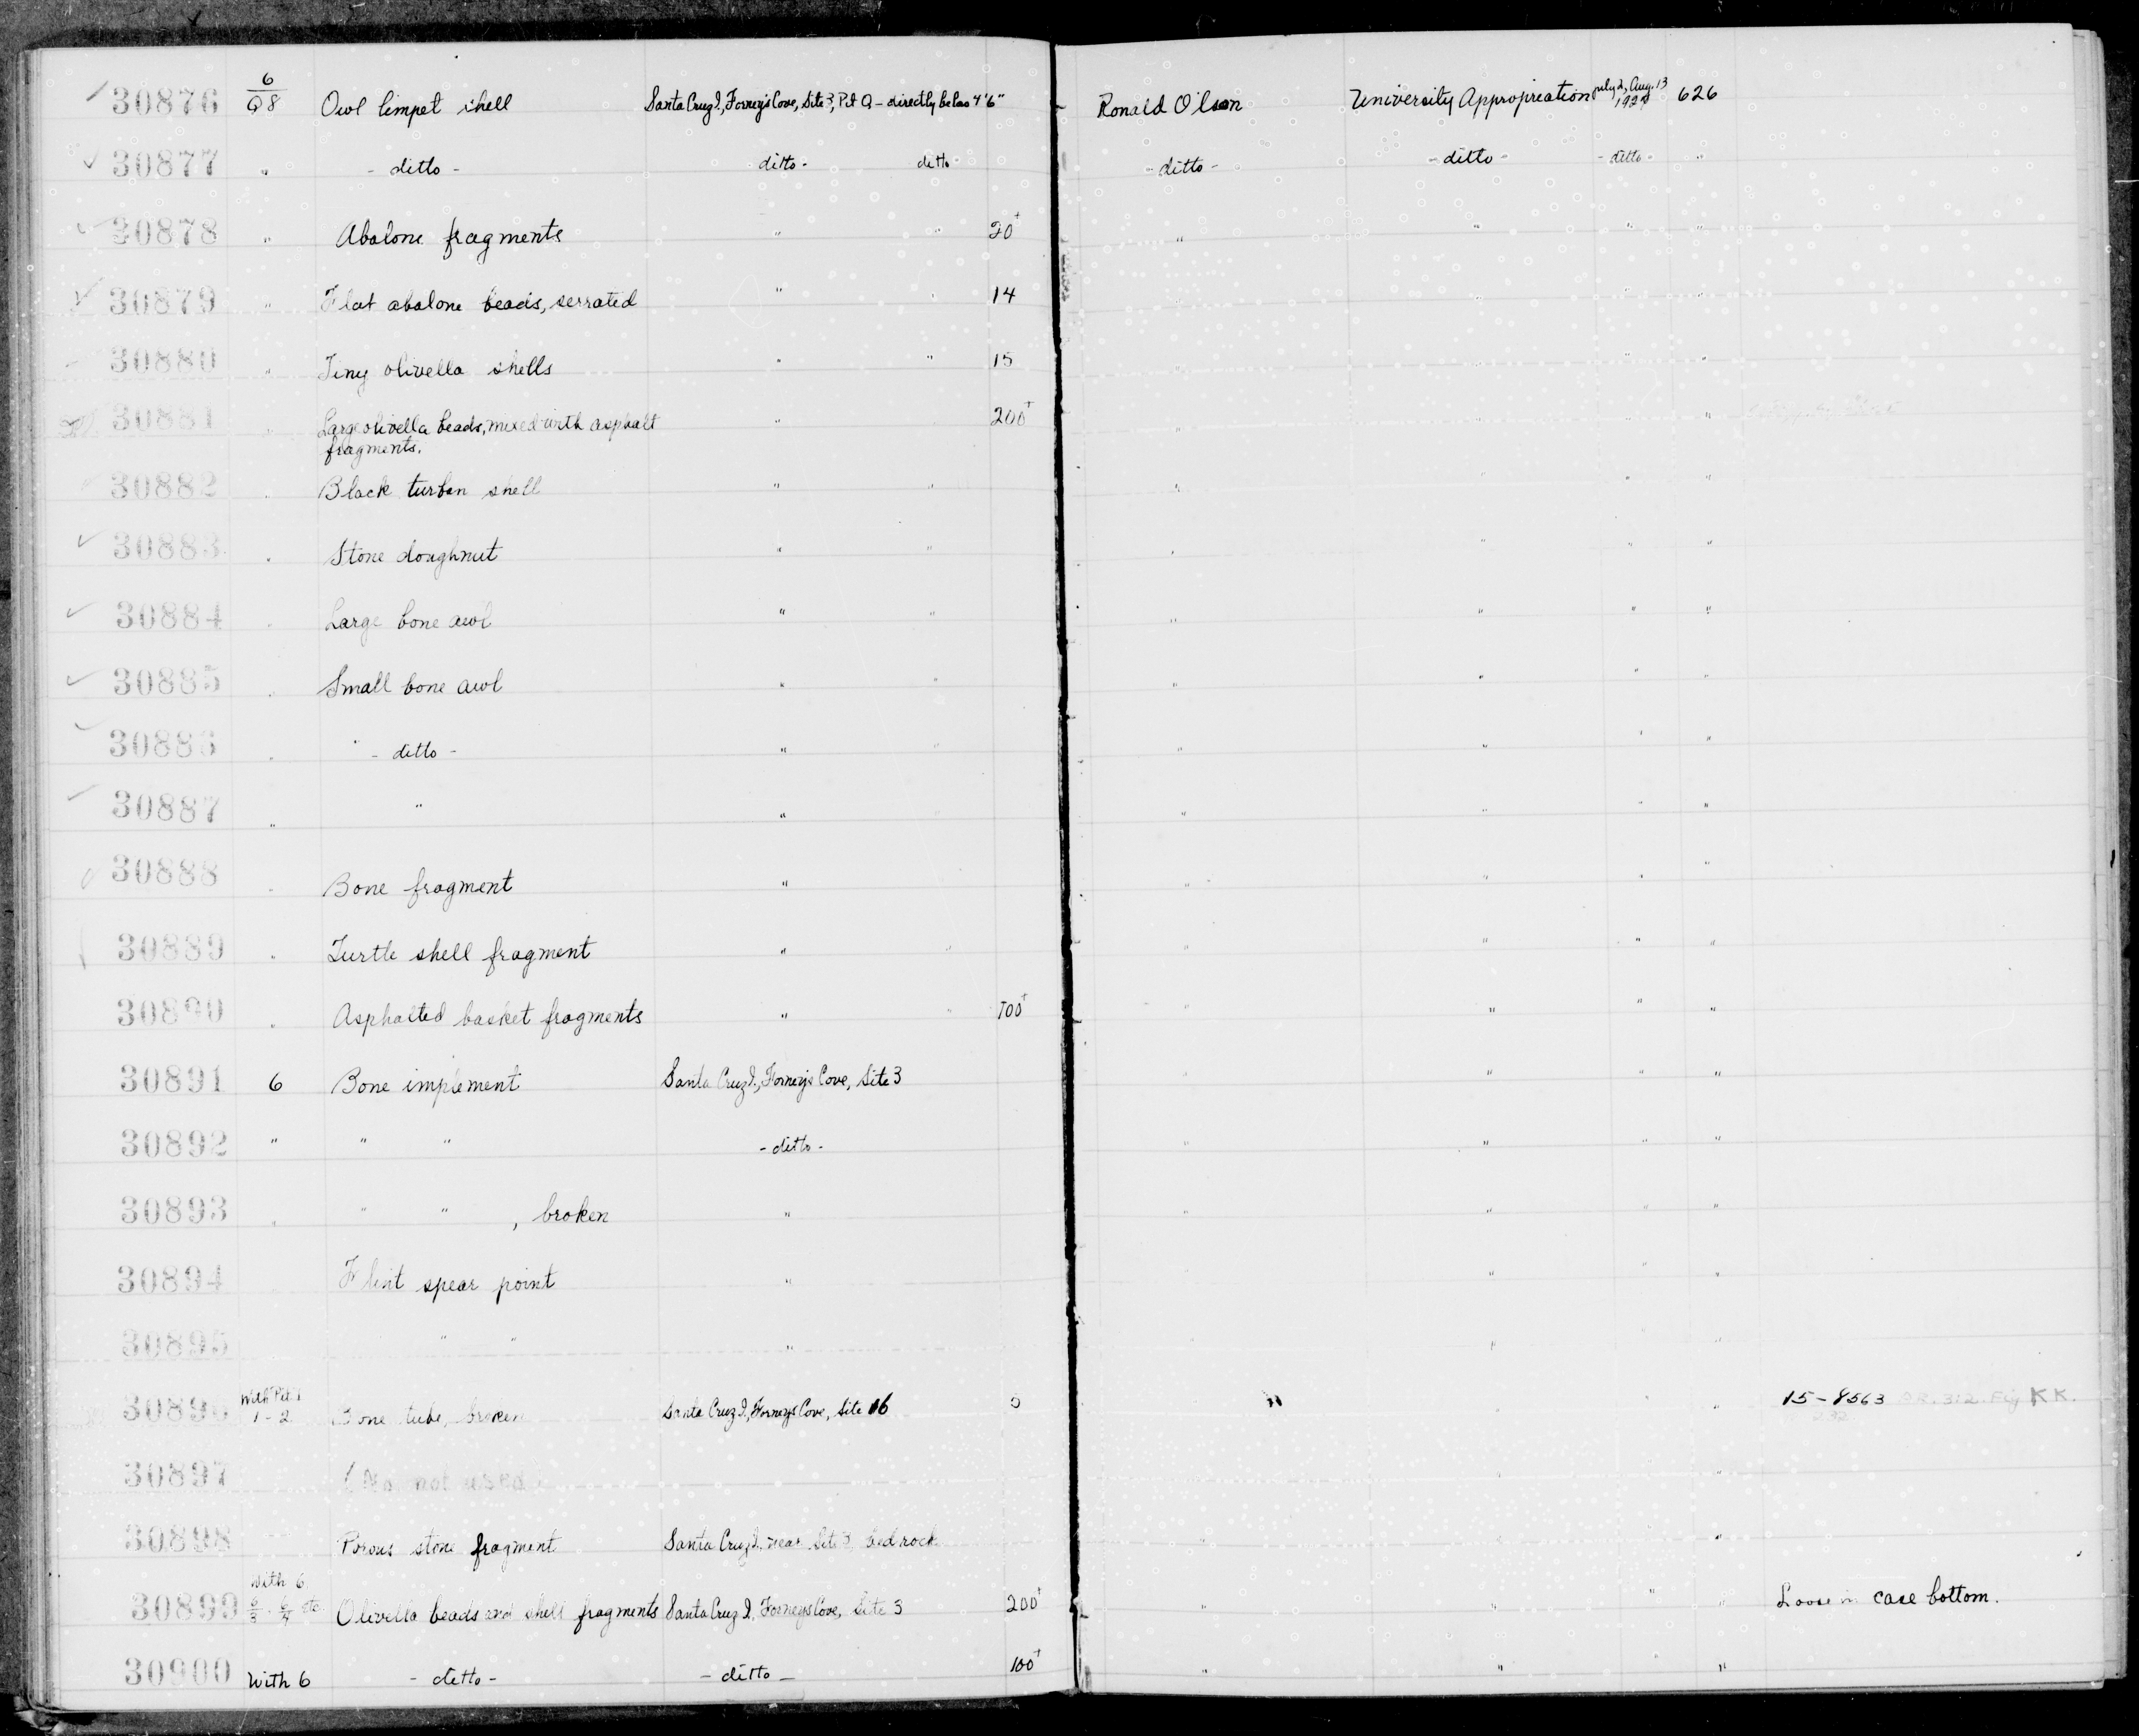 30876 6/Q8 Owl limpet shell Santa Cruz I., Forneys Cove, Site 3, Pit Q - directly below 4'6" Ronald Olson University Appropreation July 2, Aug. 13 626
30877 " - ditto - ditto - ditto - ditto - - ditto - - ditto - "
30878 " Abalone fragments " " 20+ " " " "
30879 " Flat abalone beads, serrated " " 14 " " " "
30880 " Tiny olivella shells " " 15 " " " "
30881 " Large olivella beads, mixed with asphalt " 200+ " " " "
fragments.
30882 " Black turban shell " " " " " "
30883 " Stone doughnut " " " " " "
30884 " Large bone awl " " " " " "
30885 " Small bone awl " " " " " "
30886 " - ditto - " " " " " "
30887 " " " " " " "
30888 " Bone fragment " " " " "
30889 " Turtle shell fragment " " " " " "
30890 " Asphalted basket fragments " " 100+ " " " "
30891 6 Bone implement Santa Cruz I., Forneys Cove, Site 3 " " " "
30892 " " " - ditto - " " " "
30893 " " " , broken " " " " "
30894 Flint spear point " " " "
30895 " " " " " "
30896 With Pit 1 1-2 Bone tube, broken Santa Cruz I., Forneys Cove, Site 16 " " 15-8563 312 Fig KK.
30897 (No. not used) " "
30898 Porous stone fragment Santa Cruz I. near Site 3 bedrock " " "
30899 With 6 6/3 6/4 etc. Olivella beads and shell fragments Santa Cruz I., Forneys Cove, Site 3 200+ " " " " Loose in case bottom.
30900 With 6 - ditto - - ditto - 100+ " " "